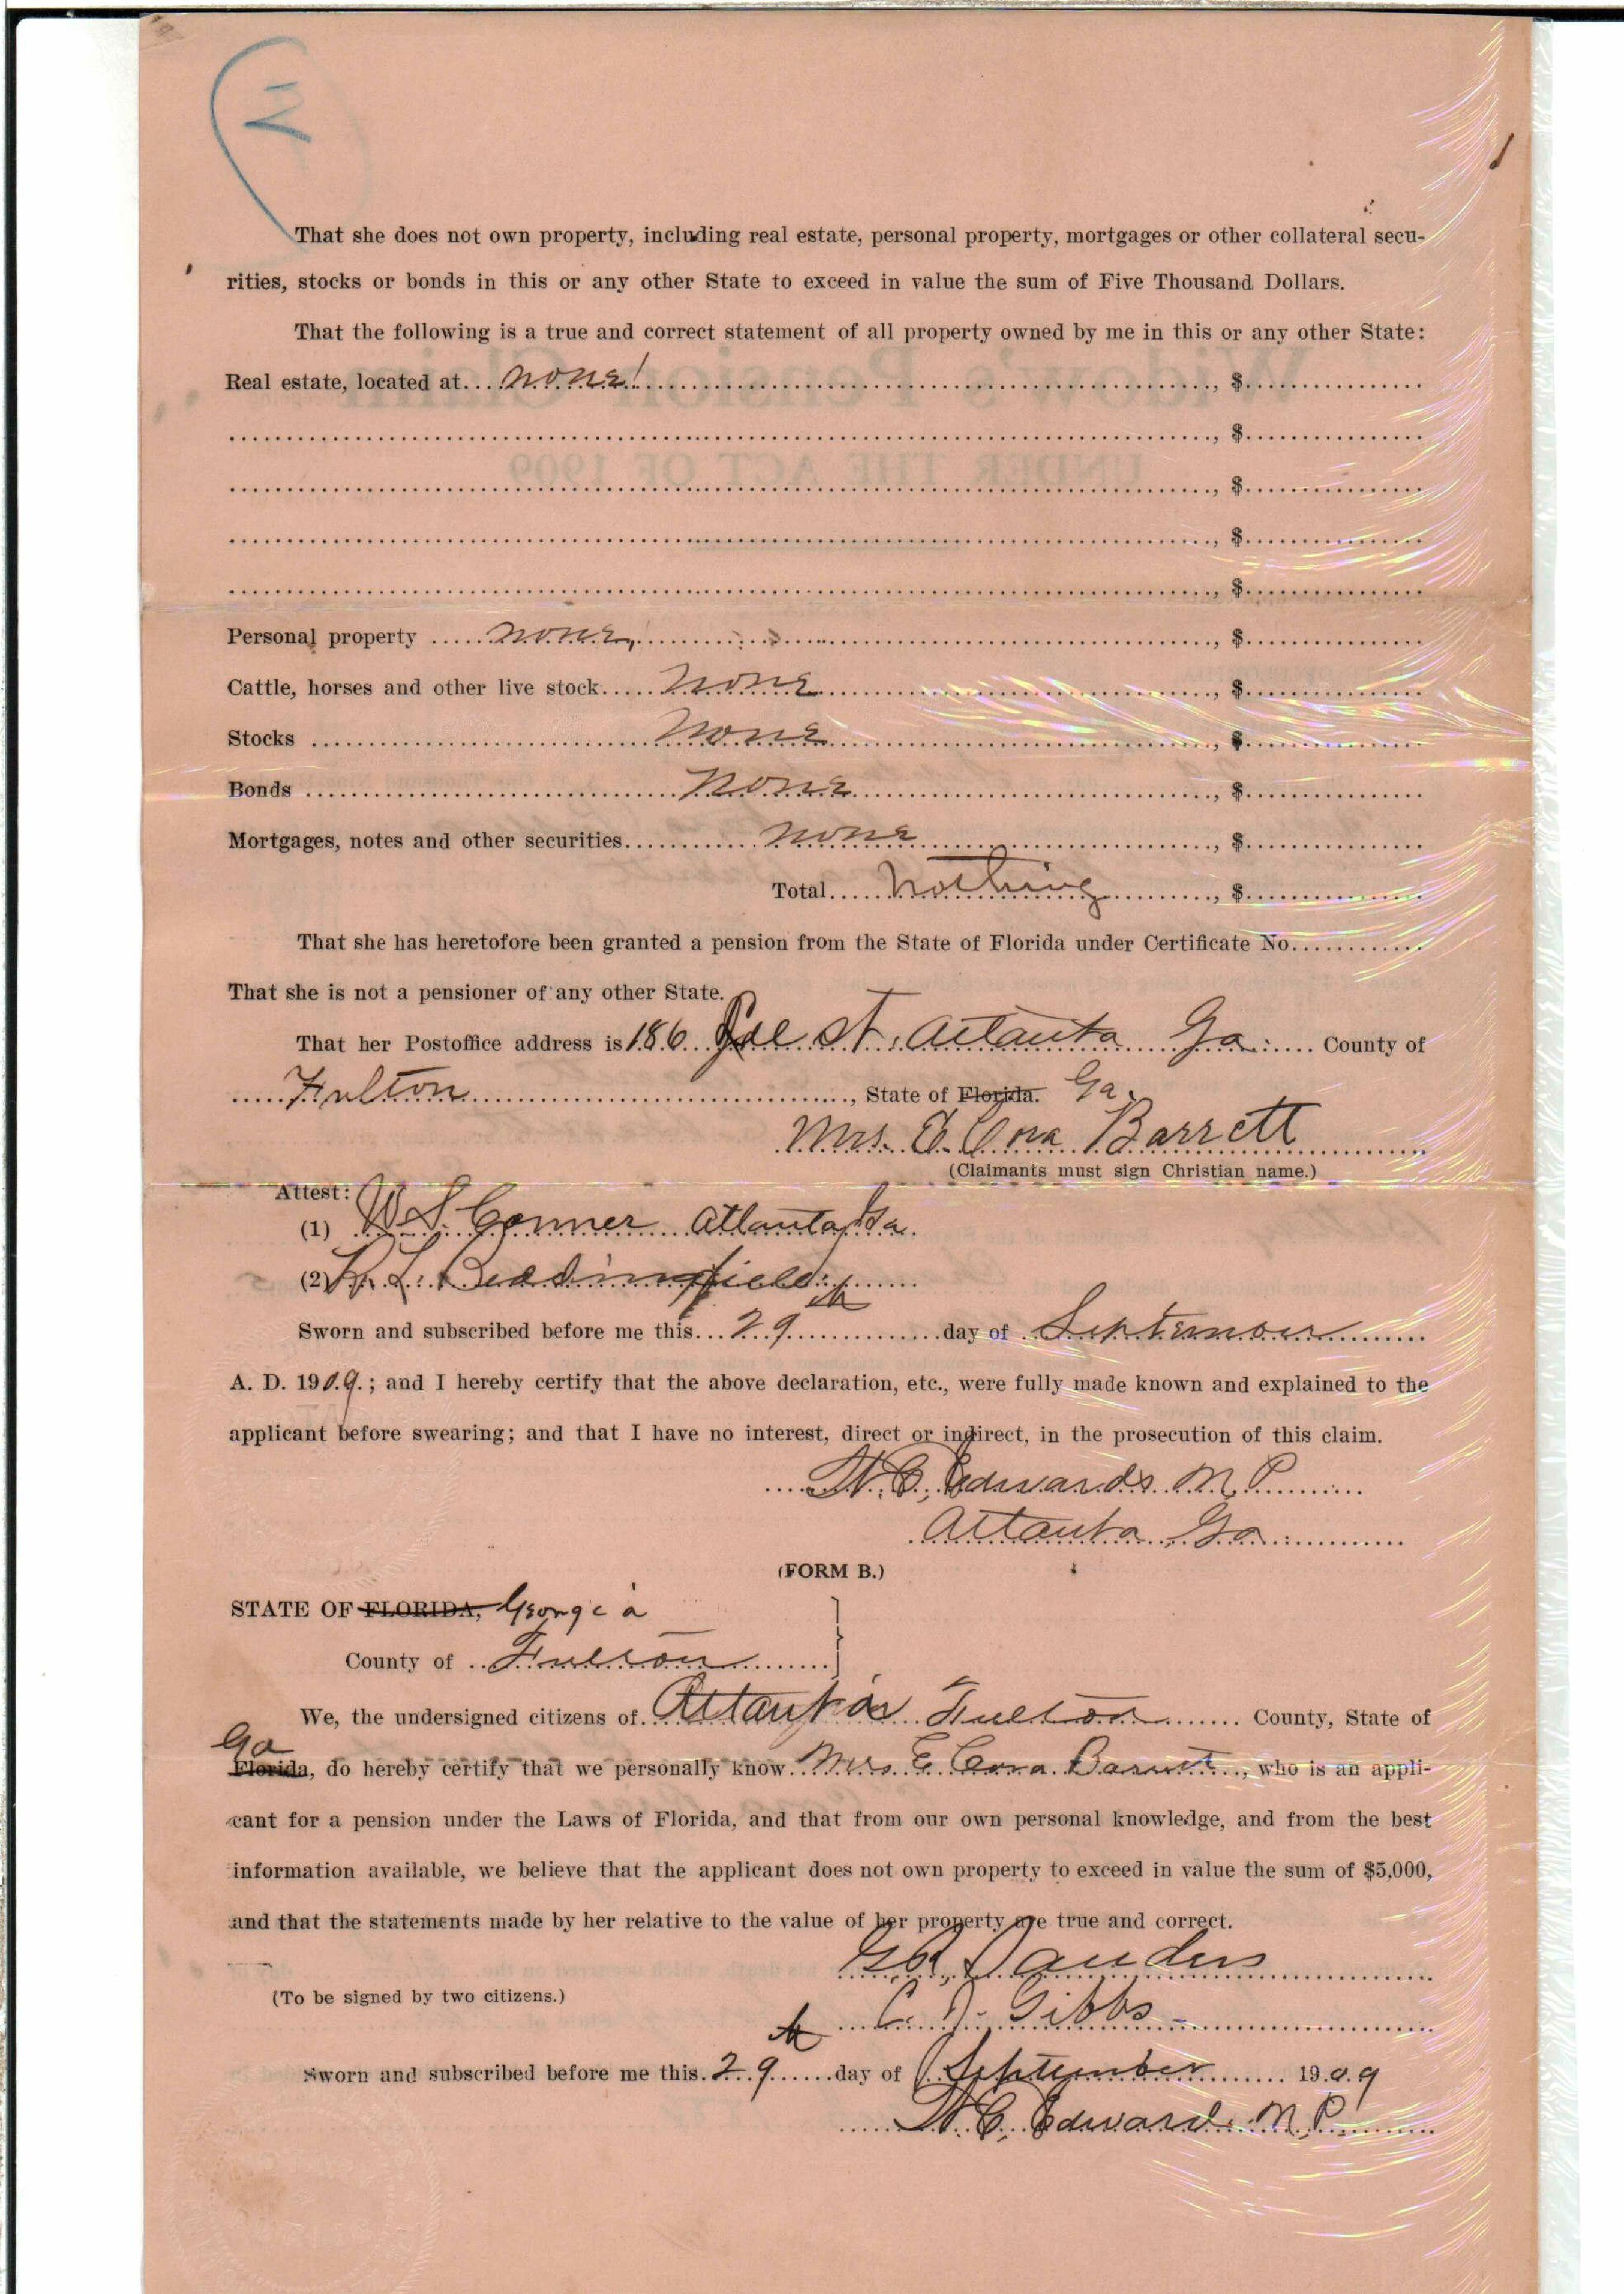 That she does not own property, including real estate, personal property, mortgages or other collateral secu-
rities, stocks or bonds in this or any other State to exceed in value the sum of Five Thousand Dollars.
That the following is a true and correct statement of all property owned by me in this or any other State:
Real estate, located at... none! ..., $...
..., $...
..., $...
..., $...
..., $...
Personal property ..... none, ..., $...
Cattle, horses and other live stock..... None ..., $...
Stocks ..... None ..., $...
Bonds ..... None ..., $...
Mortgages, notes and other securities..... none ..., $...
Total..... Nothing ..., $...
That she has heretofore been granted a pension from the State of Florida under Certificate No...
That she is not a pensioner of any other State.
That her Postoffice address is 186 St. Atlanta Ga. County of
Fulton ..., State of Florida. Ga.
Mrs. E. Cora Barrett
(Claimants must sign Christian name.)
Attest:
(1) W. S. Conner Atlanta, Ga.
(2) L. Beddingfield.
Sworn and subscribed before me this... 29th ... day of September
A. D. 1909.; and I hereby certify that the above declaration, etc., were fully made known and explained to the
applicant before swearing; and that I have no interest, direct or indirect, in the prosecution of this claim.
W. C. Edwards N. P.
Atlanta Ga.
(FORM B.)
STATE OF FLORIDA, Georgia
County of Fulton
We, the undersigned citizens of Atlanta Fulton County, State of
Ga
Florida, do hereby certify that we personally know Mrs E Cora Barrett, who is an appli-
cant for a pension under the Laws of Florida, and that from our own personal knowledge, and from the best
information available, we believe that the applicant does not own property to exceed in value the sum of $5,000,
and that the statements made by her relative to the value of her property are true and correct.
Sanders
(To be signed by two citizens.)
C. D. Gibbs
Sworn and subscribed before me this 29th day of September 1909
W. C. Edwards N. P.